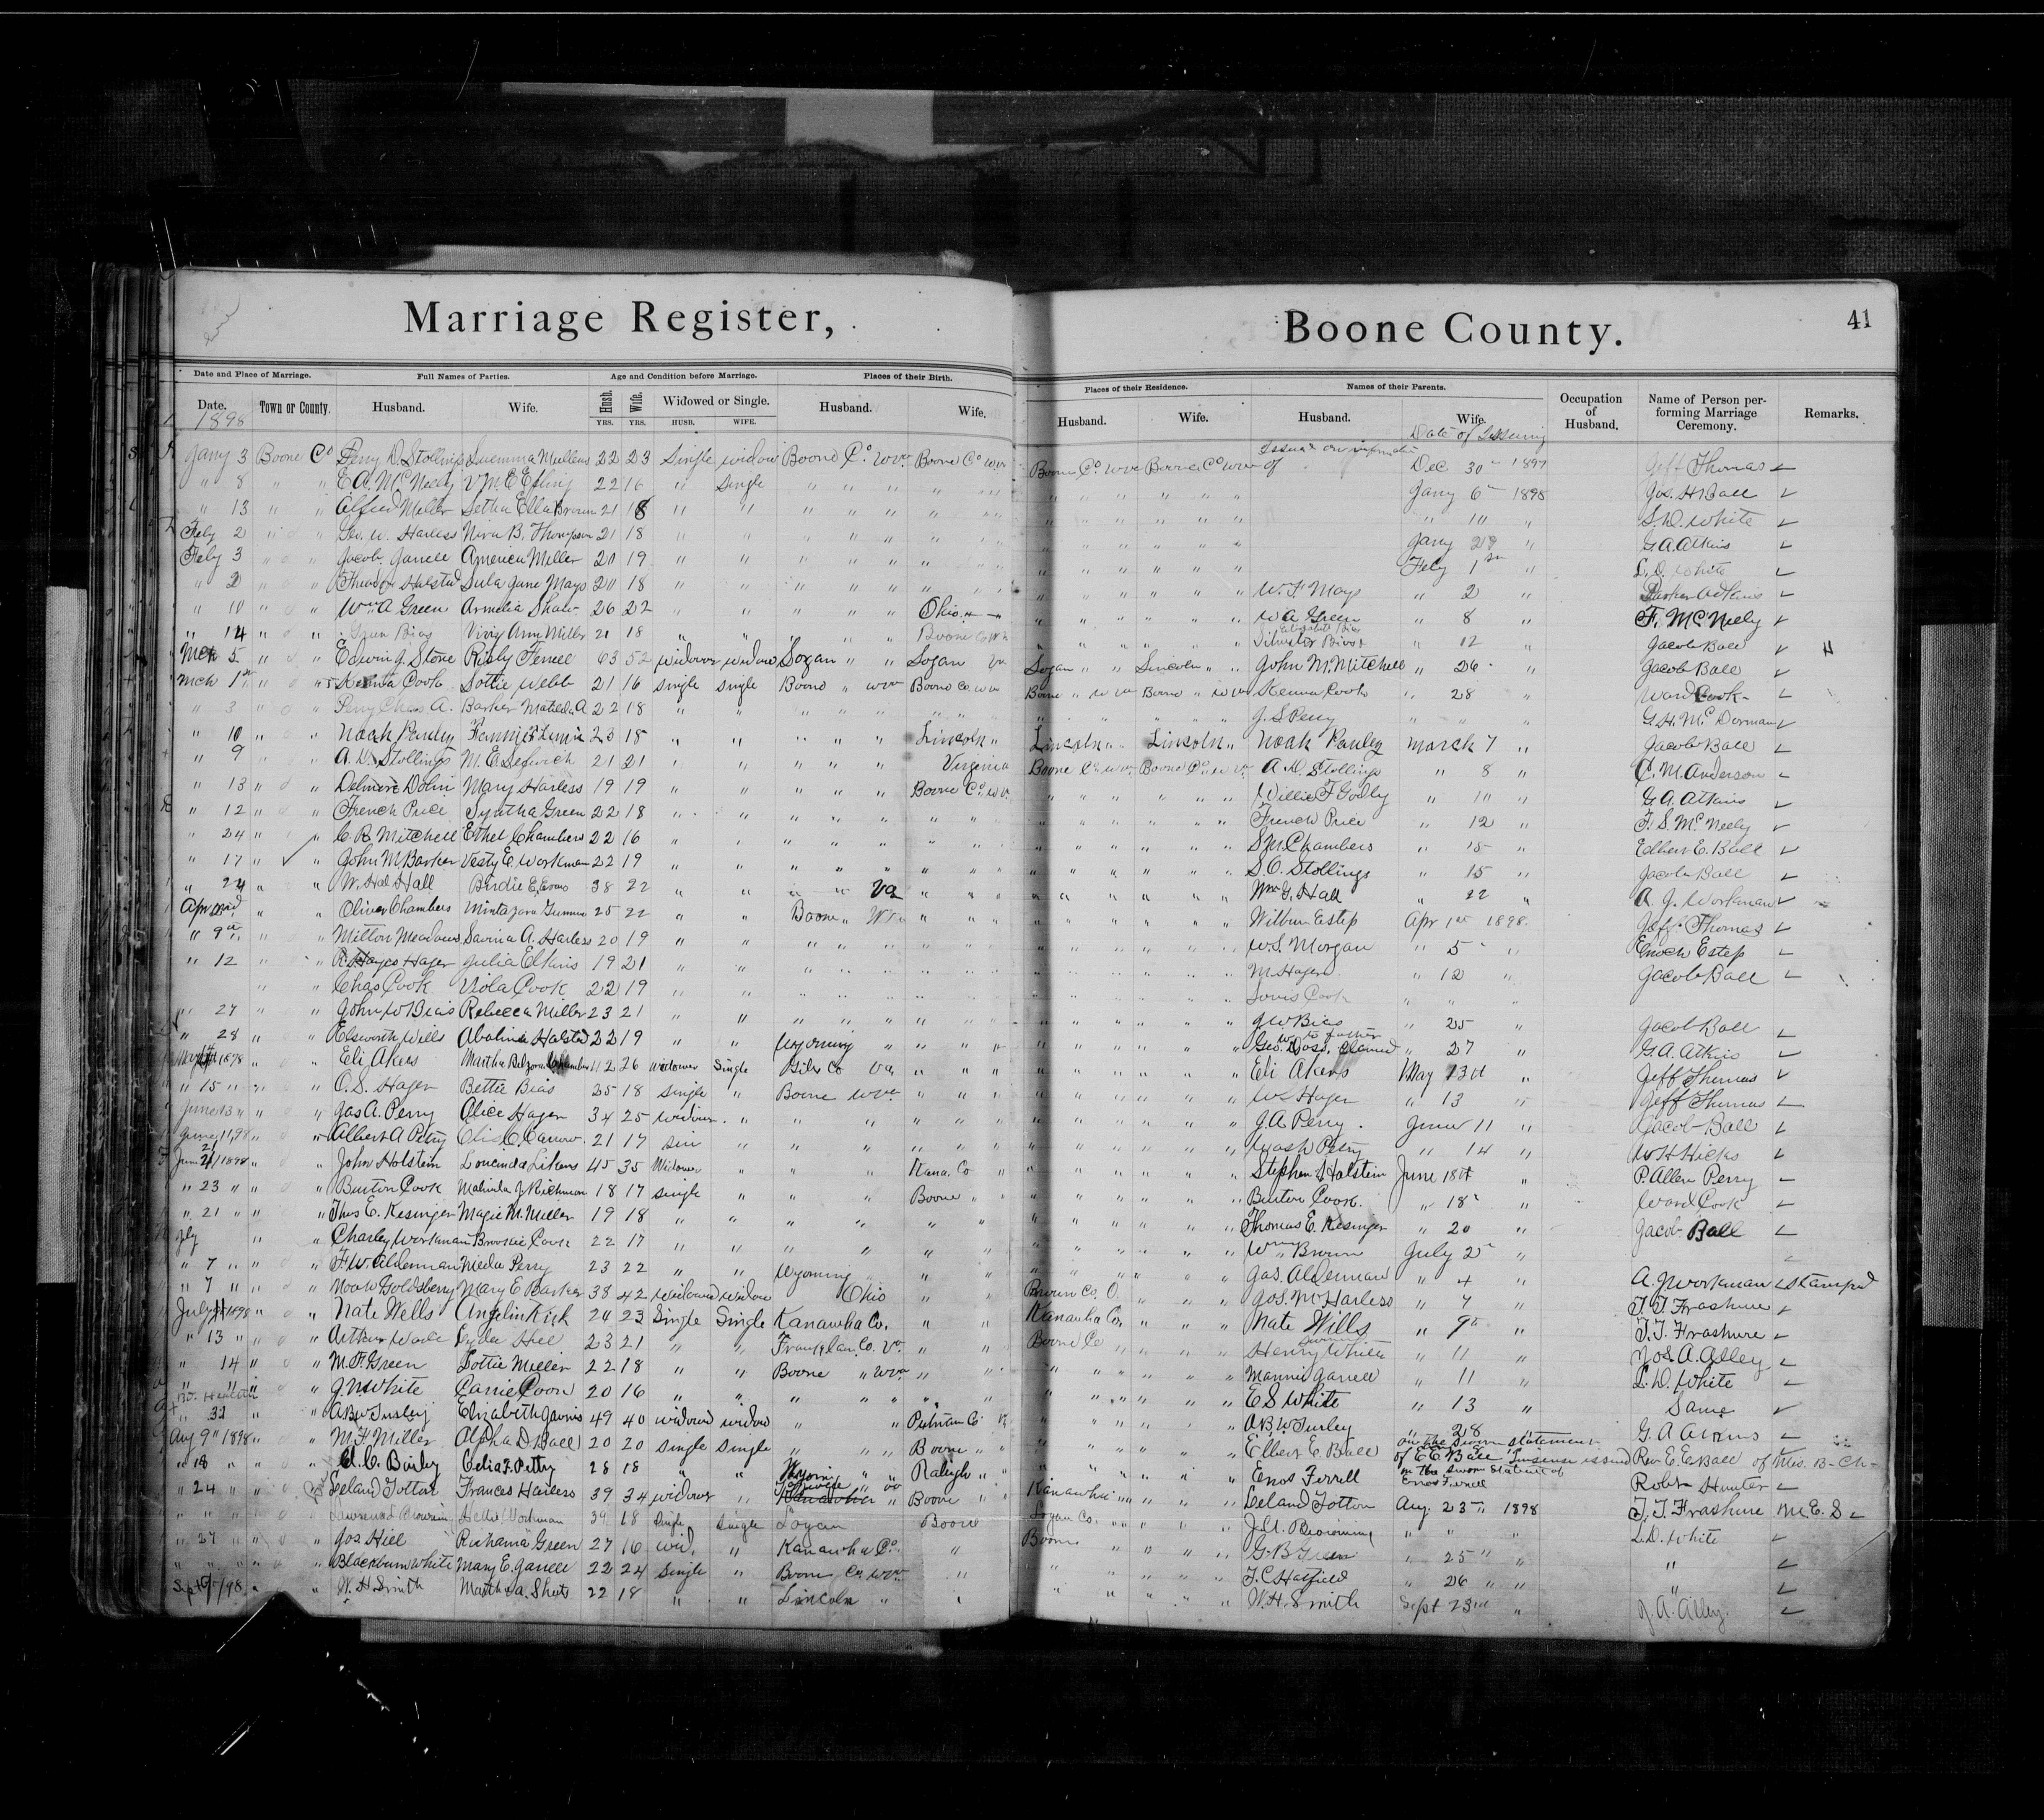 41
Marriage Register, Boone County.
Date and Place of Marriage. Full Names of Parties. Age and Condition before Marriage. Places of their Birth. Places of their Residence. Names of their Parents. Occupation of Husband. Name of Person performing Marriage Ceremony. Remarks.
Date. Town or County. Husband. Wife. Husb. Wife. Widowed or Single. Husband. Wife. Husband. Wife. Husband. Wife.
YRS. YRS. HUSB. WIFE.
1898 Date of Issuing
Jany 3 Boone Co Perry D. Stollings Luemma Mullens 22 23 Single widow Boone Co W Va Boone Co W Va Boone Co W Va Boone Co W Va Issued on information of Dec 30" 1897 Jeff Thomas
" 8 " " E A. McNeely V M E Epling 22 16 " Single " " " " " " Jany 6" 1898 Jos. H Ball
" 13 " Alfred Miller Letha Ella Brown 21 18 " " " " " " " 10 " L. D. White
Feby 2 " " Geo. W. Harless Niva B. Thompson 21 18 " " " " " " Jany 29 " G A. Atkins
Feby 3 " " Jacob Jarrell America Miller 20 19 " " " " " " Feby 1st " L. D. White
" 2 " " Halstead Lula Jane Mays 20 18 " " " " " " W. F. Mays " 2 "
" 10 " " Wm A Green Armelia Shaw 26 22 " " " " Ohio " " W A Green " 8 " F. McNeely
" 14 " " Green Bias Vicy Ann Miller 21 18 " " " " Boone Co W Va " 12 " Jacob Ball
Mch 5 " " Edwin J. Stone Risby Ferrell 63 52 widower widow Logan " " Logan Va Logan " " Lincoln " " John M. Mitchell " 26 " Jacob Ball
Mch 1st " " Cook Lottie Webb 21 16 single single Boone " W Va Boone Co W Va Boone " W Va Boone " W Va Kenna Cook " 28 " Ward Cook
" 3 " " Perry Chas A. Barker Matilda A 22 18 " " " " " " J. S Perry " " " G. H. McDorman
" 10 " " Noah Pauley 23 18 " " " " Lincoln " Lincoln " " Lincoln " Noah Pauley March 7 " Jacob Ball
" 9 " " A. D. Stollings M. E. Leftwich 21 21 " " " " Virginia Boone Co W Va Boone Co W Va A. D. Stollings " 8 " C. M. Anderson
" 13 " " Delmore Dolin Mary Harless 19 19 " " " " Boone Co W Va " " Willie F Godby " 10 " G. A. Atkins
" 12 " " French Price Syntha Green 22 18 " " " " " " French Price " 12 " F. S. McNeely
" 24 " " C R Mitchell Ethel Chambers 22 16 " " " " " " S M Chambers " 15 " Elbert E. Ball
" 17 " " John M Barker Vesty E. Workman 22 19 " " " " " " S. C. Stollings " 15 " Jacob Ball
" 24 " " W. Hall Birdie E. Evans 38 22 " " " Va " " " Wm G. Hall " 22 " A. J. Workman
Apr " " Oliver Chambers 25 22 " " Boone " W Va " " " Wilburn Estep Apr 1st 1898. Jeff Thomas
" 9th " " Milton Meadows Savina A. Harless 20 19 " " " " " " W. S. Morgan " 5 " Enoch Estep
" 12 " " R. Hayes Hager Julia Elkins 19 21 " " " " " " M. Hager " 12 " Jacob Ball
" " Chas Cook Viola Cook 22 19 " " " " " " Lewis Cook " " "
" 27 " " John W Bias Rebecca Miller 23 21 " " " " " " J W Bias " 25 " Jacob Ball
" 28 " " Elsworth Wills Abalina Halsted 22 19 " " Wyoming " " " " " " 27 " G. A. Atkins
1898 " " Eli Akers Martha Chambers 26 widower Single Giles Co Va " " " Eli Akers May 13th " Jeff Thomas
" 15 " " O. S. Hager Bettie Bias 35 18 single " Boone W Va " " " W S Hager " 13 " Jeff Thomas
June 13 " " Jas A. Perry Alice Hager 34 25 widower " " " " " J. A. Perry June 11 " Jacob Ball
June 11, 98 " " Albert A Petry 21 17 sin " " " " " Wash Petry " 14 " W H Hicks
June 21/1898 " " John Holstein Loucinda Likens 45 35 Widower " " " Kana. Co " " " Stephen S Holstein June 18th " P. Allen Perry
" 23 " " Burton Cook Malinda J Richmon 18 17 single " " " Boone " " " Burton Cook. " 18 " Ward Cook
" 21 " " Thos E. Kesinger Magie M. Miller 19 18 " " " " " " Thomas E. Kesinger " 20 " Jacob Ball
Jly " " Charley Workman Brookie Cook 22 17 " " " " " " Wm Brown July 2 "
" 7 " " F. W. Alderman Meda Perry 23 22 " " Wyoming " " " " Jas. Alderman " 4 " A. J Workman stamped
" 7 " " Noah W Goldsberry Mary E Barker 38 42 widowed widow Ohio " " Brown Co. O. " " Jos. M Harless " 7 " T. T. Frashure
July 1898 " " Nate Wells Angelin Kirk 24 23 Single Single Kanawha Co. " " Kanawha Co. " " Nate Wills " 9th " T. T. Frashure
" 13 " " Arthur Wade Lyda Hill 23 21 " " Franklan Co. Va. " " Boone Co " " Henry White " 11 " Jos. A. Alley
" 14 " " M. F. Green Lottie Miller 22 18 " " Boone " W Va " " " Mannie Jarrell " 11 " L. D. White
" " " J. N White Carrie Coon 20 16 " " " " " " E S White " 13 " Same
" 31 " " A B W Turley Elizabeth Jarvis 49 40 widowed widow " " Putnam Co " " A B W Turley " 28 G A
Aug 9" 1898 " " M. F. Miller Alpha D Ball 20 20 single single " " Boone " " " Elbert E. Ball on the sworn statement of E E Ball Lisense issued Rev E. E Ball of Mis. B- Ch-
" 18 " " C. Bailey Celia F. Petty 28 18 " " " " Raleigh " " " Enos Ferrell on the sworn statement of Enos Ferrell Robt Hunter
" 24 " " Leland Totton Frances Harless 39 34 widower " Boone " " Kanawha " " " Leland Totton Aug. 23 " 1898 T. T. Frashure M. E. S
" " " " Lawrence Browning Workman 39 18 Single single Logan Boone Logan Co. " " J. A. Browning " " " L. D. White
" 27 " " Jos. Hill Ruhama Green 27 16 wid. " Kanawha Co. " Boone " " G. B Green " 25 " " "
" " " " Blackburn White Mary E. Jarrell 22 24 single " Boone Co W Va " " " T. C Hatfield " 26 " " "
Sept /98 " " W. H. Smith Martha A. Sheets 22 18 " " Lincoln " " " " W. H. Smith Sept 23rd " J. A. Alley.